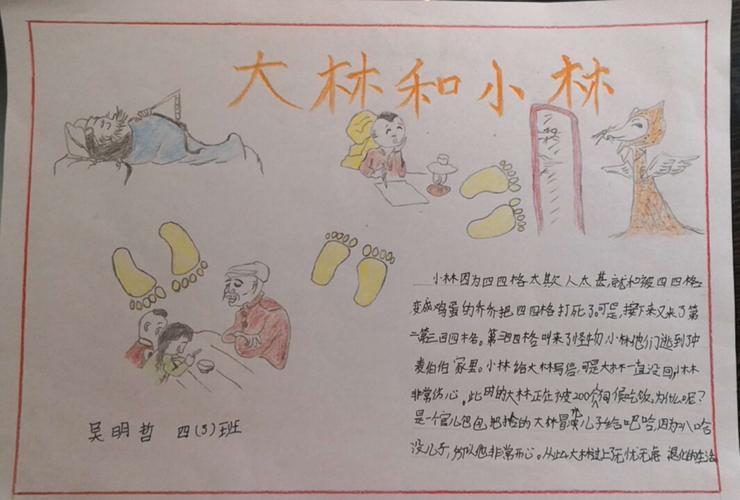 大林和小林
小林因为四四格太欺人太甚,就和被四四格
变成鸡蛋的乔乔把四四格打死了。可是,接下来又来了第
二第三四四格。第三四四格叫来了怪物,小林他们逃到了中
麦伯伯家里。小林给大林写信,可是大林一直没回,小林
非常伤心。此时的大林正在被200个人伺候吃饭。为什么呢?
是一个官儿包包,把捡的大林冒充儿子给叭哈,因为叭哈
没儿子,所以他非常开心。从此,大林过上了无忧无虑
的生活
吴明哲 四(5)班